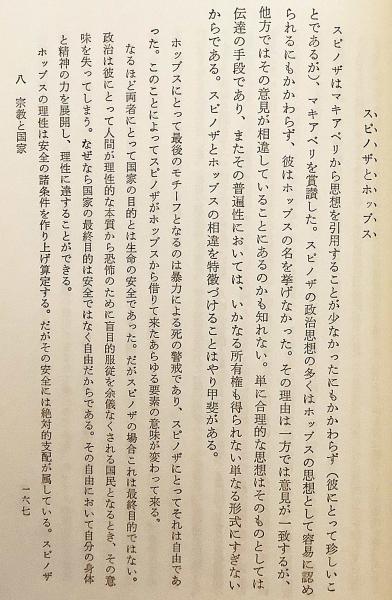 スピノザとホッブス
スピノザはマキアベリから思想を引用することが少なかったにもかかわらず（彼にとって珍しいこ
とであるが）、マキアベリを賞讃した。スピノザの政治思想の多くはホッブスの思想として容易に認め
られるにもかかわらず、彼はホッブスの名を挙げなかった。その理由は一方では意見が一致するが、
他方ではその意見が相違していることにあるのかも知れない。単に合理的な思想はそのものとしては
伝達の手段であり、またその普遍性においては、いかなる所有権も得られない単なる形式にすぎない
からである。スピノザとホッブスの相違を特徴づけることはやり甲斐がある。
ホッブスにとって最後のモチーフとなるのは暴力による死の警戒であり、スピノザにとってそれは自由であ
った。このことによってスピノザがホッブスから借りて来たあらゆる要素の意味が変わって来る。
なるほど両者にとって国家の目的とは生命の安全であった。だがスピノザの場合これは最終目的ではない。
政治は彼にとって人間が理性的な本質から恐怖のために盲目的服従を余儀なくされる国民となるとき、その意
味を失ってしまう。なぜなら国家の最終目的は安全ではなく自由だからである。その自由において自分の身体
と精神の力を展開し、理性に達することができる。
ホッブスの理性は安全の諸条件を作り上げ算定する。だがその安全には絶対的支配が属している。スピノザ
八 宗教と国家
一六七